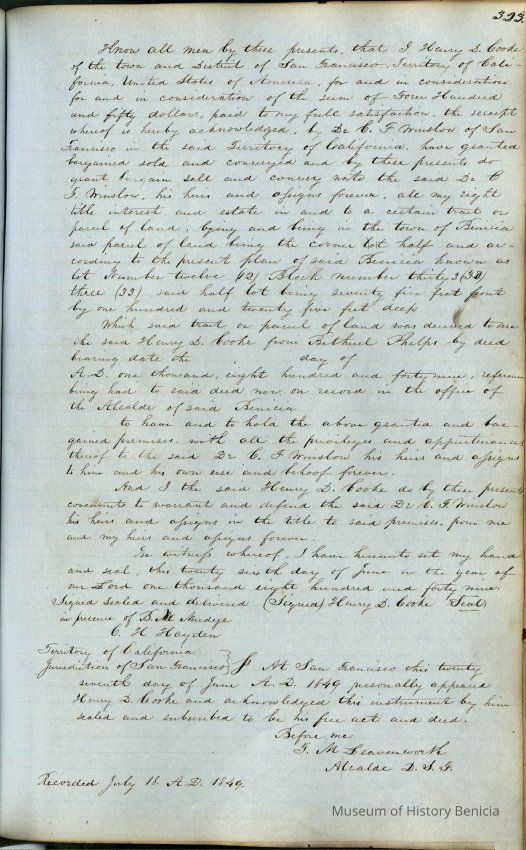 323.
Know all men by these presents, that I Henry D. Cooke
of the town and District of San Francisco, Territory of Cali-
fornia, United States of America, for and in consideration
for and in consideration of the sum of Four Hundred
and fifty dollars, paid to my full satisfaction, the receipt
whereof is hereby acknowledged, by Dr C. F Winslow of San
Francisco in the said Territory of California, have granted
bargained sold and conveyed and by these presents do
grant bargain sell and convey unto the said Dr C
F. Winslow, his heirs and assigns forever, all my right
title interest and estate in and to a certain tract or
parcel of land, lying and being in the town of Benicia
said parcel of land being the corner lot half and ac-
cording to the present plan of said Benicia known as
lot Number twelve (12) Block number thirty
three (33) said half lot being seventy five feet front
by one hundred and twenty five feet deep
Which said tract or parcel of land was deeded to me
the said Henry D. Cooke from Bethuel Phelps by deed
bearing date the day of
A.D. one thousand, eight hundred and forty nine, reference
being had to said deed now on record in the office of
the Alcalde of said Benicia
to have and to hold the above granted and bar-
gained premises, with all the privileges and appurtenances
thereof to the said Dr C. F Winslow his heirs and assigns
to him and his own use and behoof forever.
And I the said Henry D. Cooke do by these presents
covenants to warrant and defend the said Dr C. F. Winslow
his heirs and assigns in the title to said premises, from me
and my heirs and assigns forever.
In witness whereof, I have hereunto set my hand
and seal, this twenty sixth day of June in the year of
our Lord one thousand eight hundred and forty nine.
Signed sealed and delivered (Signed) Henry D. Cooke Seal
in presence of B. M.
C. H Hayden
Territory of California
Jurisdiction of San Francisco } At San Francisco this twenty
seventh day of June A. D. 1849 personally appeared
Henry D. Cooke and acknowledged this instrument by him
sealed and subscribed to be his free act and deed.
Before me
T. M Leavenworth
Alcalde D. S. F.
Recorded July 18. A.D. 1849
Museum of History Benicia